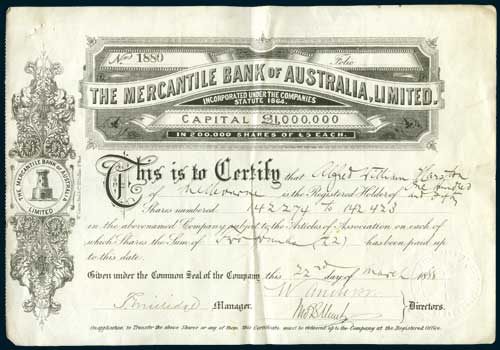 Nos 1889 Folio
THE MERCANTILE BANK OF AUSTRALIA, LIMITED.
INCORPORATED UNDER THE COMPANIES
STATUTE 1864.
CAPITAL £1,000,000
IN 200,000 SHARES OF £5 EACH.
THE MERCANTILE BANK OF AUSTRALIA
LIMITED
This is to Certify that Alfred William
of Melbourne is the Registered Holder of one hundred
Shares numbered 142274 to 142423
in the abovenamed Company subject to the Articles of Association on each of
which Shares the Sum of Two pounds (£2) has been paid up
to this date.
Given under the Common Seal of the Company this 22nd day of March 1888
Manager. Directors.
On application to Transfer the above Shares or any of them this Certificate must be delivered up to the Company at the Registered Office.